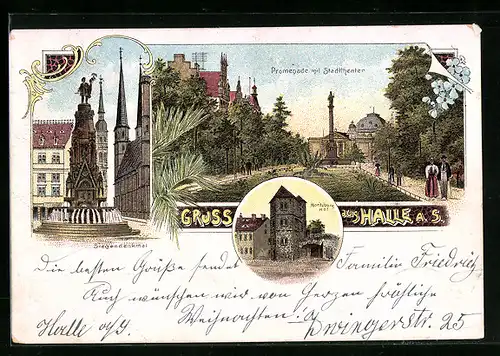 Promenade mit Stadttheater
GRUSS aus HALLE a. S.
Moritzburg
Siegesdenkmal
Die besten Grüße sendet Familie Friedrich
Auch wünschen wir von Herzen fröhliche
Weihnachten
Halle a/S. Zwingerstr. 25